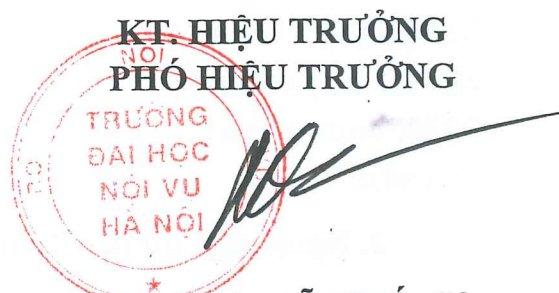 KT. HIỆU TRƯỞNG
PHÓ HIỆU TRƯỞNG
NỘI
TRƯỜNG
ĐẠI HỌC
NỘI VỤ
HÀ NỘI